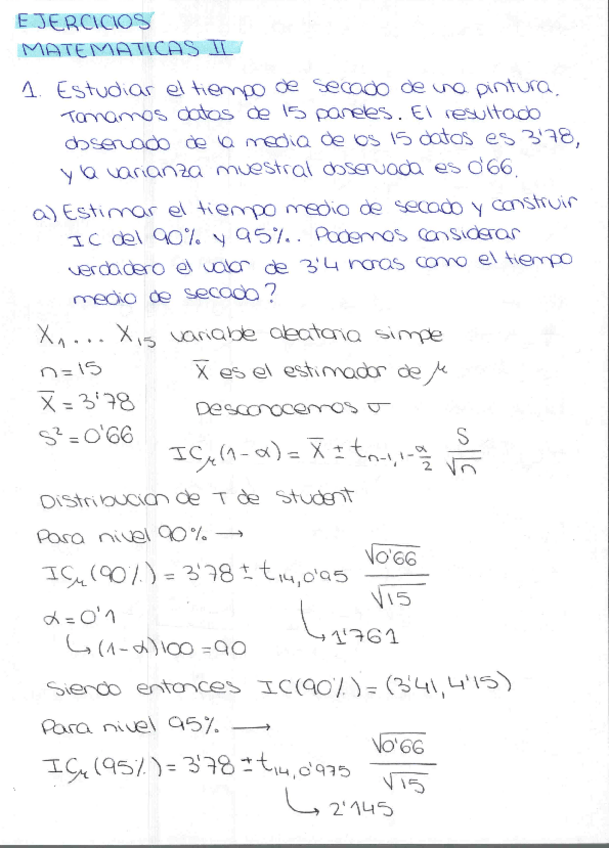 EJERCICIOS
MATEMATICAS II
1. Estudiar el tiempo de secado de una pintura.
Tomamos datos de 15 paneles. El resultado
observado de la media de los 15 datos es 3'78,
y la varianza muestral observada es 0'66.
a) Estimar el tiempo medio de secado y construir
IC del 90% y 95%. Podemos considerar
verdadero el valor de 3'4 horas como el tiempo
medio de secado?
X₁ ... X₁₅ variable aleatoria simple
n=15 X̄ es el estimador de μ
X̄ = 3'78 Desconocemos σ
S² = 0'66
IC_μ (1-α) = X̄ ± t_{n-1, 1-α/2} S/√n
Distribucion de T de Student
Para nivel 90% →
IC_μ (90%) = 3'78 ± t_{14, 0'95} √0'66/√15
α = 0'1 ↳ 1'761
↳ (1-α)100 = 90
Siendo entonces IC(90%) = (3'41, 4'15)
Para nivel 95% →
IC_μ (95%) = 3'78 ± t_{14, 0'975} √0'66/√15
↳ 2'145